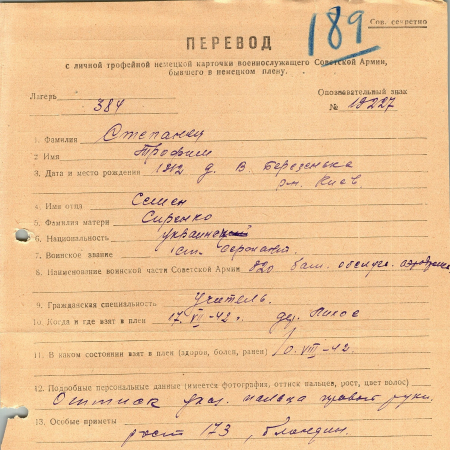 189
Сов. секретно
ПЕРЕВОД
с личной трофейной немецкой карточки военнослужащего Советской Армии,
бывшего в немецком плену.
Лагерь 384
Опознавательный знак
№ 19227
1. Фамилия Степанец
2 Имя Трофим
3. Дата и место рождения 1912 д. В. Березенька
Киев
4. Имя отца Семен
5. Фамилия матери Сиренко
6. Национальность украинский
7. Воинское звание ст. сержант
8. Наименование воинской части Советской Армии 820 бат. обслуж. аэродрома
9. Гражданская специальность Учитель.
10. Когда и где взят в плен 17. -42. др.
11. В каком состоянии взят в плен (здоров, болен, ранен) VIII -42.
12. Подробные персональные данные (имеется фотография, оттиск пальцев, рост, цвет волос)
Оттиск указ. пальца правой руки.
13. Особые приметы рост 173, блондин.